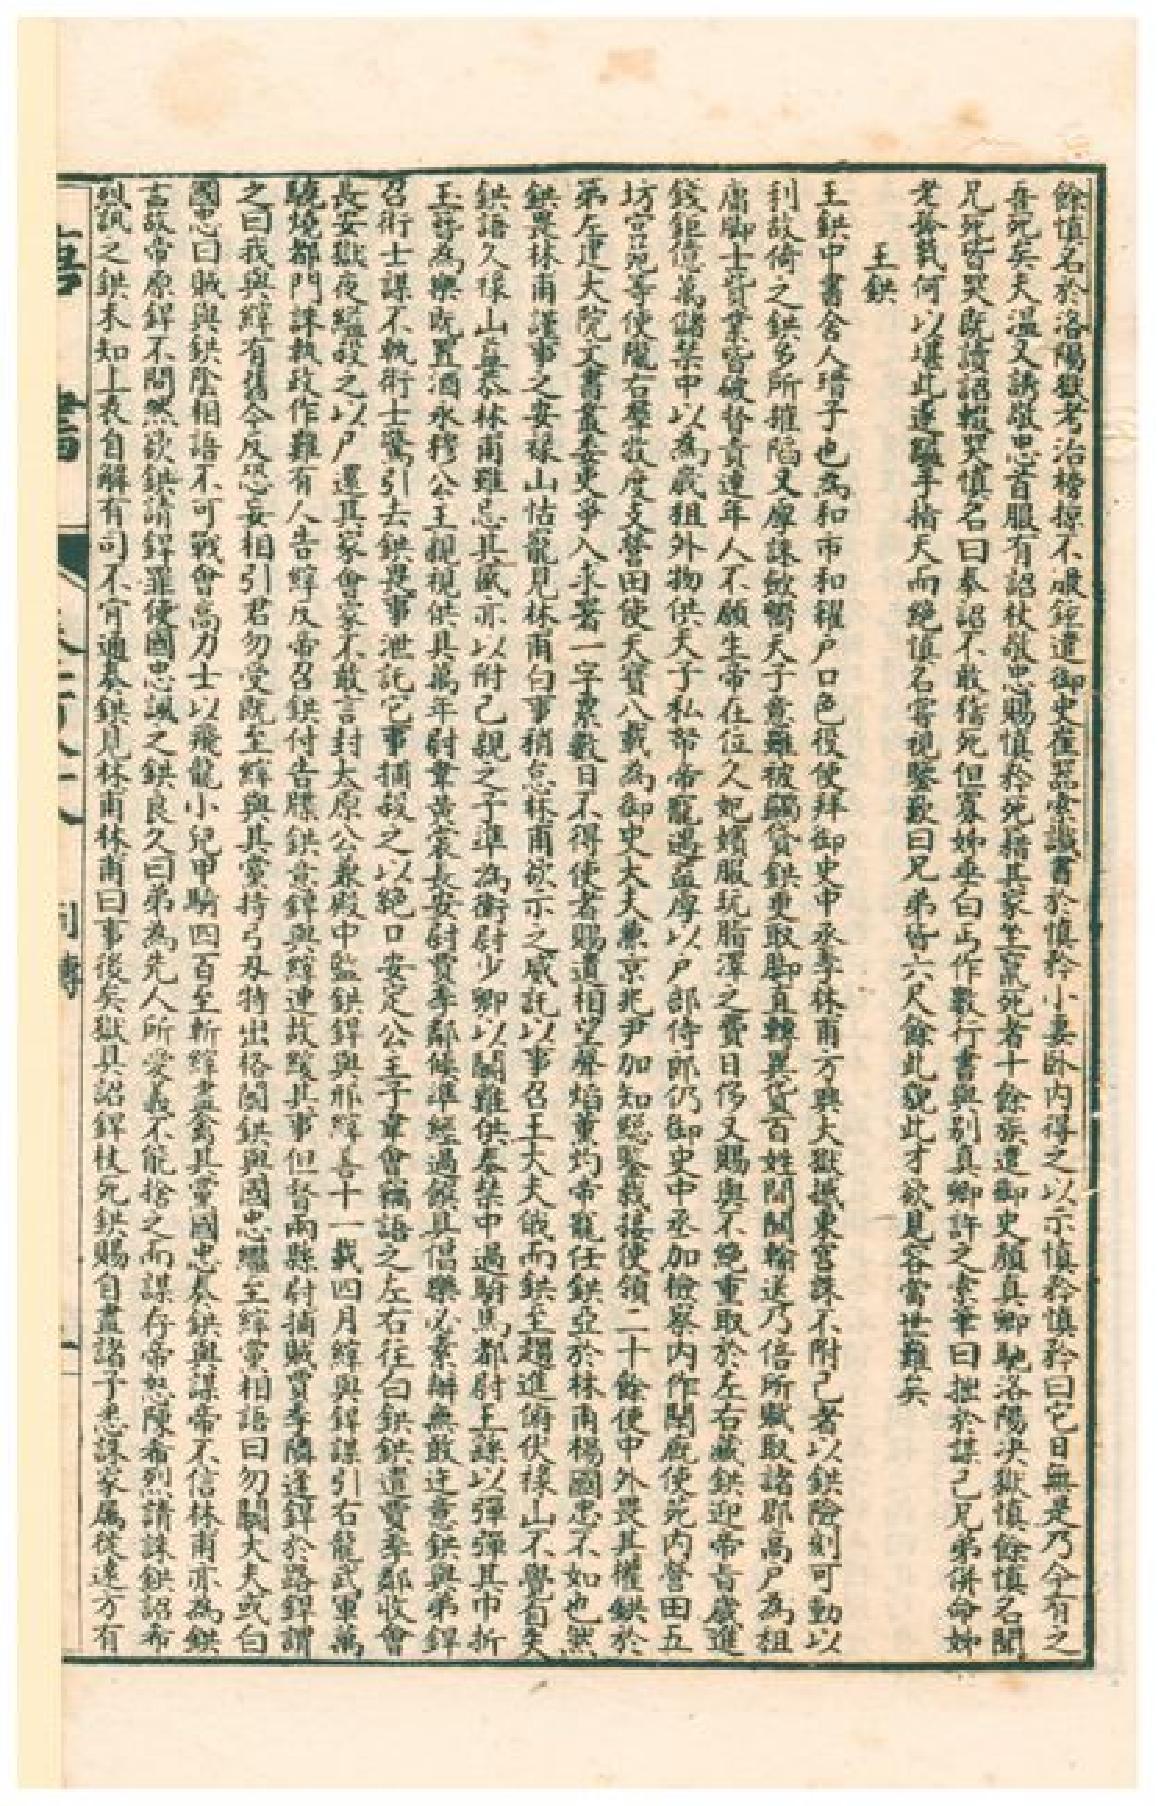 餘慎名於洛陽獄考治搒掠不服鉷遣御史崔器索讖書於慎矜小妻臥內得之以示慎矜慎矜曰它日無是乃今有之
吾死矣夫溫又誘敬忠首服有詔杖敬忠賜慎矜死籍其家坐竄死者十餘族遣御史顏真卿馳洛陽決獄慎餘慎名聞
兄死皆哭既讀詔輟哭慎名曰奉詔不敢稽死但寡姊垂白乞作數行書與別真卿許之索筆曰拙於謀己兄弟併命姊
老孤煢何以堪此遂縊手指天而絕慎名嘗視鑒歎曰兄弟皆六尺餘此貌此才欲見容當世難矣
王鉷
王鉷中書舍人瑨子也為和市和糴戶口色役使拜御史中丞李林甫方興大獄撼東宮誅不附己者以鉷險刻可動以
利故倚之鉷多所摧陷又厚誅斂嚮天子意雖被蠲貸鉷更取腳直轉異貨百姓間關輸送乃倍所賦取諸郡高戶為租
庸腳士貲業皆破督責連年人不願生帝在位久妃嬪服玩脂澤之費日侈又賜與不絕重取於左右藏鉷迎帝旨歲進
錢鉅億萬儲禁中以為歲租外物供天子私帑帝寵遇益厚以戶部侍郎仍御史中丞加檢察內作閑廄使苑內營田五
坊宮苑等使隴右群牧度支營田使天寶八載為御史大夫兼京兆尹加知總監栽接使領二十餘使中外畏其權鉷於
弟左建大院文書叢委吏爭入求署一字累數日不得使者賜遺相望聲焰薰灼帝寵任鉷亞於林甫楊國忠不如也然
鉷畏林甫謹事之安祿山怙寵見林甫白事稍怠林甫欲示之威託以事召王大夫俄而鉷至趨進俯伏祿山不覺自失
鉷語久祿山益恭林甫雖忌其盛亦以附己親之子準為衛尉少卿以鬭雞供奉禁中過駙馬都尉王繇以彈彈其巾折
玉簪為樂既置酒永穆公主親視供具萬年尉韋黃裳長安尉賈季鄰候準經過饌具倡樂必素辦無敢迕意鉷與弟銲
召術士謀不軌術士驚引去鉷畏事泄託它事捕殺之以絕口安定公主子韋會竊語之左右往白鉷鉷遣賈季鄰收會
長安獄夜縊殺之以尸還其家會家不敢言封太原公兼殿中監鉷銲與邢縡善十一載四月縡與銲謀引右龍武軍萬
騎燒都門誅執政作難有人告縡反帝召鉷付告牒鉷意銲與縡連故緩其事但督兩縣尉捕賊賈季鄰逢銲於路銲謂
之曰我與縡有舊今反恐妄相引君勿受既至縡與其黨持弓刃特出格鬭鉷與國忠繼至縡黨相語曰勿鬭大夫或白
國忠曰賊與鉷陰相語不可戰會高力士以飛龍小兒甲騎四百至斬縡盡禽其黨國忠奏鉷與謀帝不信林甫亦為鉷
言故帝原銲不問然欲鉷請銲罪使國忠諷之鉷良久曰弟為先人所愛義不能捨之而謀存帝怒陳希烈請誅鉷詔希
烈訊之鉷未知上表自解有司不肯通奏鉷見林甫林甫曰事後矣獄具詔銲杖死鉷賜自盡諸子悉誅家屬徙遠方有